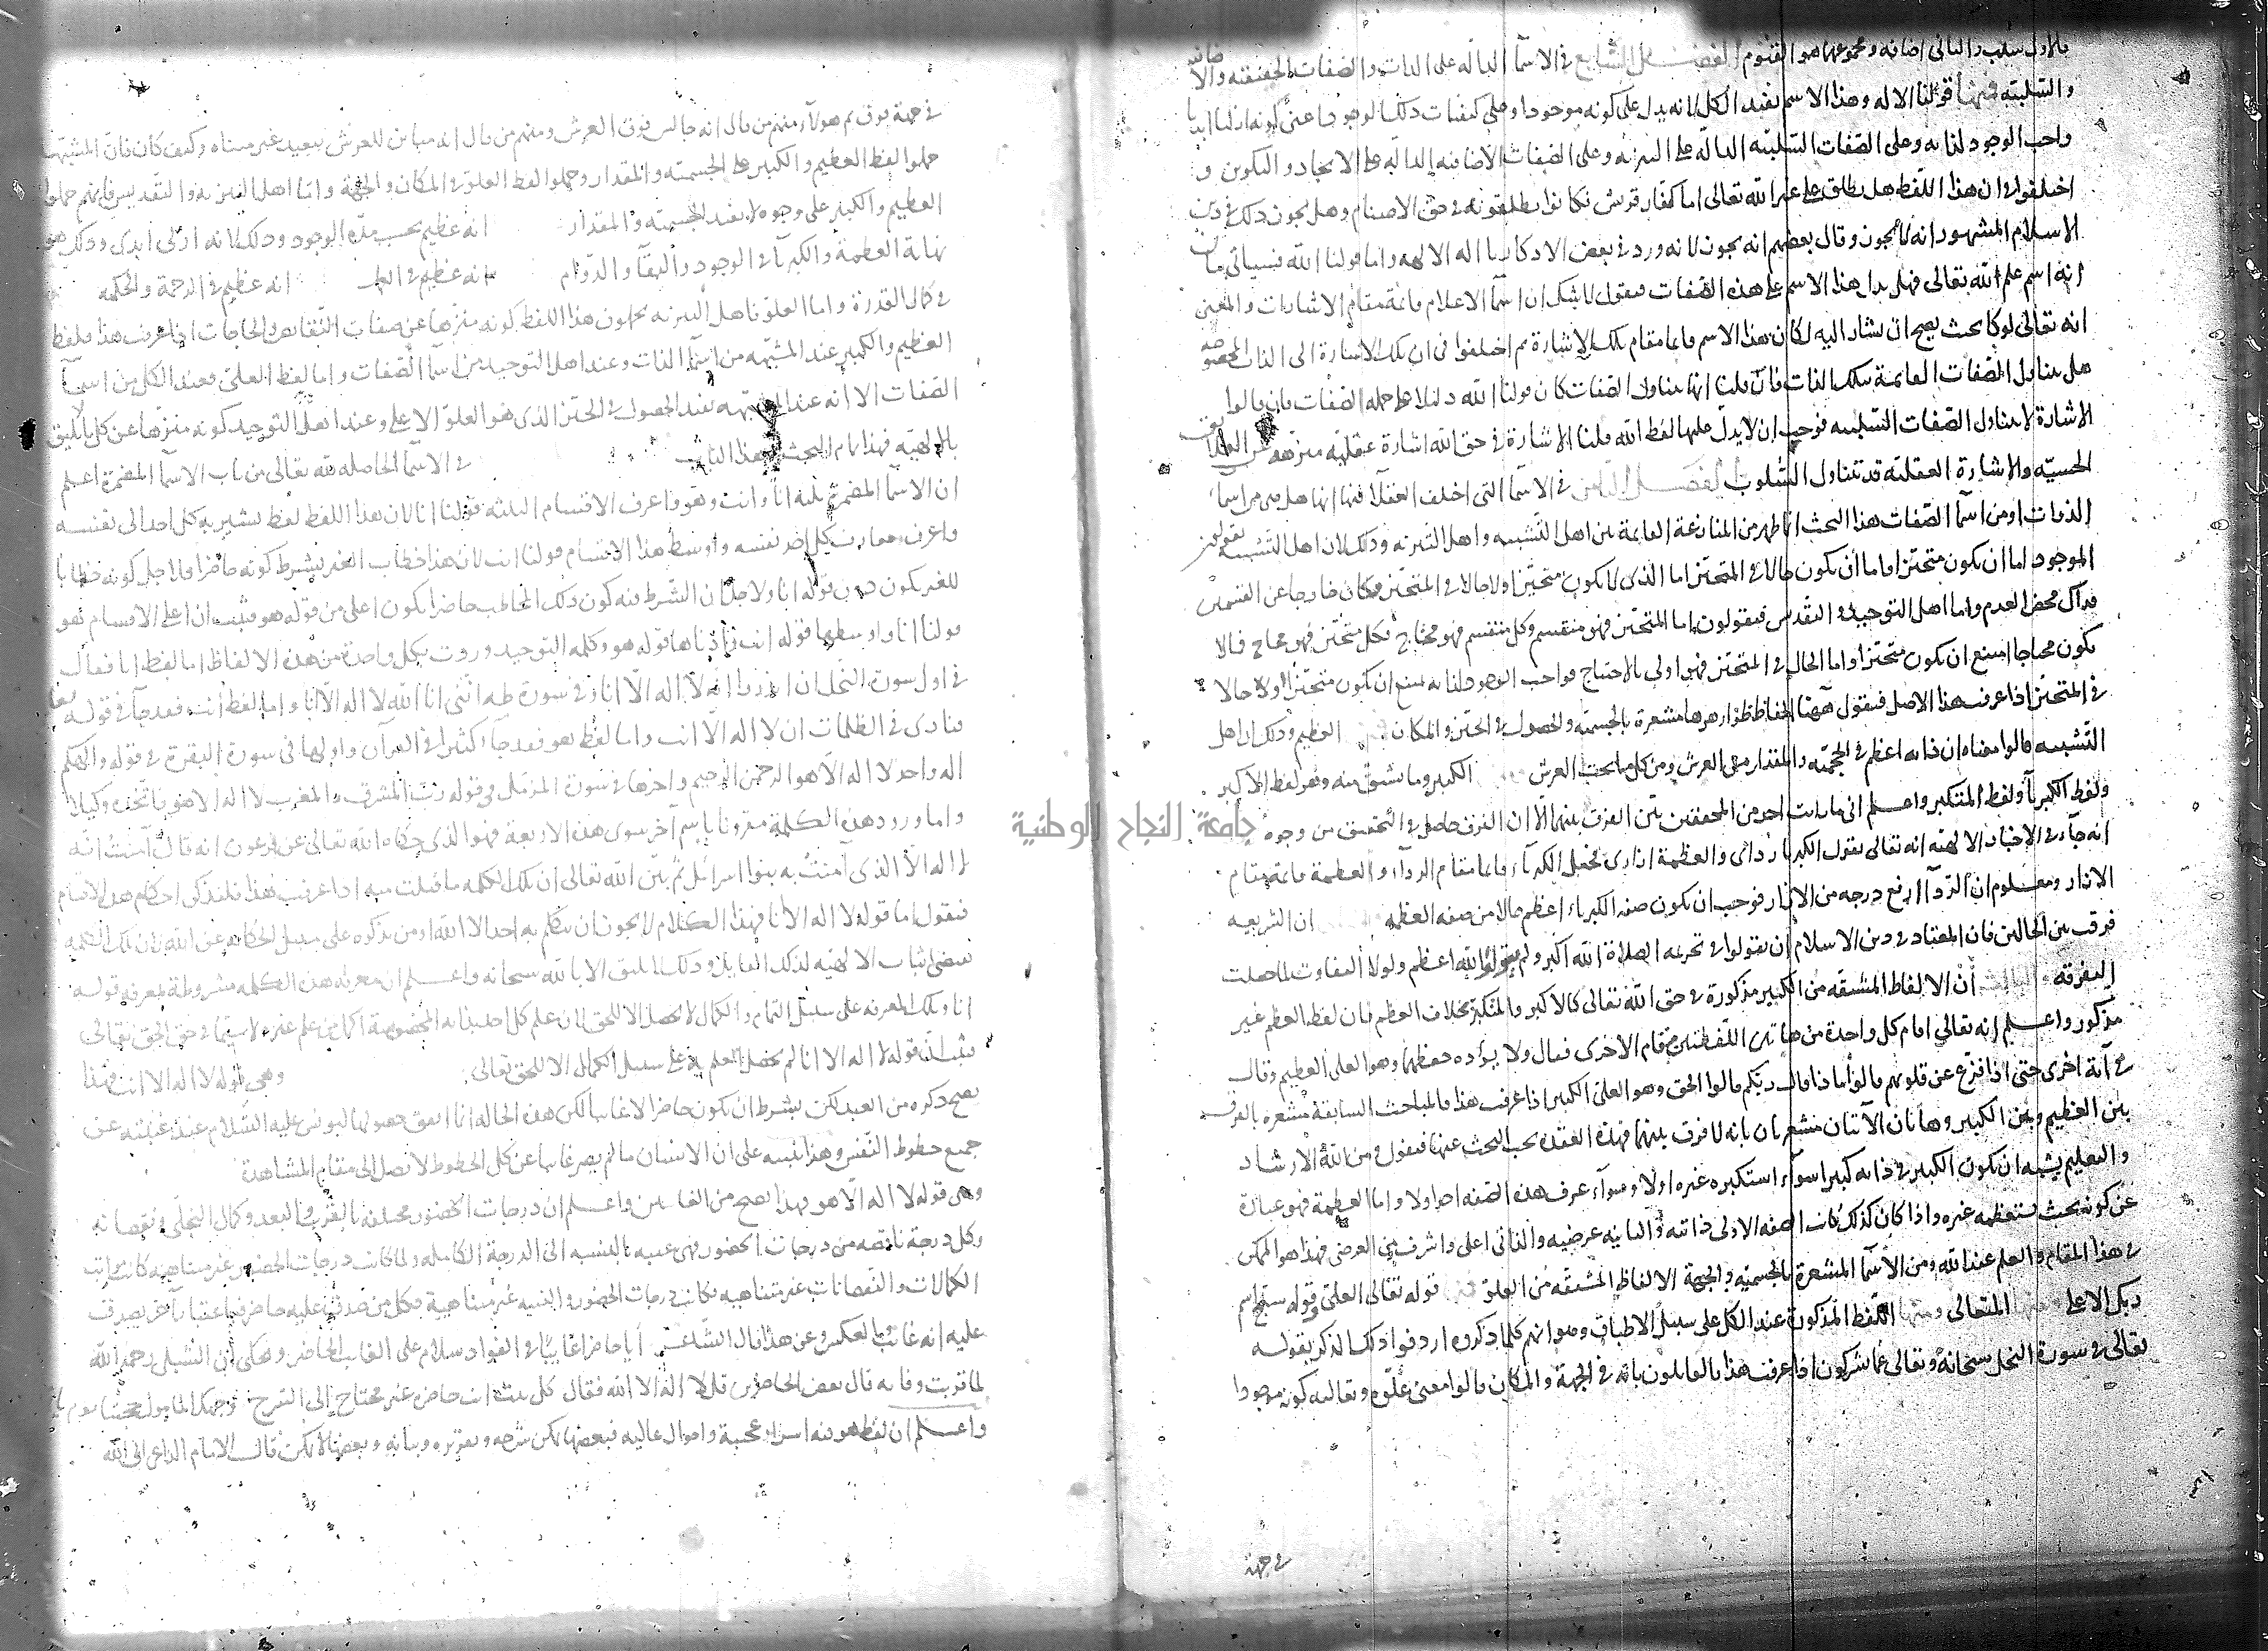 فالاول سلب والثاني اضافة ومجموعهما هو القيوم الفصل السابع في الاسما الدالة على الذات والصفات الحقيقية والاضافية
والسلبية فمنها قولنا الاله وهذا الاسم يفيد الكل لانه يدل على كونه موجودا وعلى كيفيات ذلك الوجود اعني كونه ازليا ابديا
واجب الوجود لذاته وعلى الصفات السلبية الدالة على التنزيه وعلى الصفات الاضافية الدالة على الايجاد والتكوين و
اختلفوا في ان هذا اللفظ هل يطلق على غير الله تعالى اما كفار قريش فكانوا يطلقونه في حق الاصنام وهل يجوز ذلك في دين
الاسلام المشهور انه لا يجوز وقال بعضهم انه يجوز لانه ورد في بعض الاذكار يا اله الالهة واما قولنا الله فسياتي بيان
انه اسم علم لله تعالى فهل يدل هذا الاسم على هذه الصفات فنقول لا شك ان اسما الاعلام قائمة مقام الاشارات والمعنى
انه تعالى لو كان بحيث يصح ان يشار اليه لكان هذا الاسم قائما مقام تلك الاشارة ثم اختلفوا في ان تلك الاشارة الى الذات المخصوصة
هل يتناول الصفات القائمة بتلك الذات فان قلنا انها يتناول الصفات كان قولنا الله دليلا على جملة الصفات فان قالوا
الاشارة لا يتناول الصفات السلبية فوجب ان لا يدل عليها لفظ الله قلنا الاشارة في حق الله اشارة عقلية منزهة عن العلائق
الحسية والاشارة العقلية قد تتناول السلوب الفصل الثامن في الاسما التي اختلف العقلا فيها انها هل هي من اسما
الذوات او من اسما الصفات هذا البحث انما ظهر من المنازعة القائمة بين اهل التشبيه واهل التنزيه وذلك لان اهل التشبيه يقولون
الموجود اما ان يكون متحيزا واما ان يكون حالا في المتحيز اما الذي لا يكون متحيزا ولا حالا في المتحيز فكان خارجا عن القسمين
فذاك محض العدم واما اهل التوحيد والتقديس فيقولون اما المتحيز فهو منقسم وكل منقسم فهو محتاج فكل متحيز فهو محتاج فما لا
يكون محتاجا امتنع ان يكون متحيزا واما الحال في المتحيز فهو اولى بالاحتياج فواجب الوجود لذاته يمتنع ان يكون متحيزا او لا حالا
في المتحيز اذا عرفت هذا الاصل فنقول ههنا الفاظ ظواهرها مشعرة بالجسمية والحصول في الحيز والمكان العظيم وذلك ان اهل
التشبيه قالوا معناه ان ذاته اعظم في الحجمية والمقدار من العرش ومن كل ما تحت العرش الكبير وما يشتق منه وهو لفظ الاكبر
ولفظ الكبريآ ولفظ المتكبر واعلم اني ما رايت احدا من المحققين بين الفرق بينهما الا ان الفرق حاصل في التحقيق من وجوه
انه جآء في الاخبار الالهية انه تعالى يقول الكبريا ردائى والعظمة ازارى فجعل الكبرياء قائما مقام الردآء والعظمة قائمة مقام
الازار ومعلوم ان الردآ ارفع درجة من الازار فوجب ان يكون صفة الكبرياء اعظم حالا من صفة العظمة ان الشريعة
فرقت بين الحالين فان المعتاد في دين الاسلام ان يقولوا في تحريمة الصلاة الله اكبر ولم يقولوا الله اعظم ولولا التفاوت لما حصلت
التفرقة الثالث ان الالفاظ المشتقة من الكبير مذكورة في حق الله تعالى كالاكبر والمتكبر بخلاف العظم فان لفظ العظم غير
مذكور واعلم انه تعالى اقام كل واحدة من هاتين اللفظتين مقام الاخرى فقال ولا يؤده حفظهما وهو العلى العظيم وقال
في آية اخرى حتى اذا فزع عن قلوبهم قالوا ماذا قال ربكم قالوا الحق وهو العلى الكبير اذا عرفت هذا فالمباحث السابقة مشعرة بالفرق
بين العظيم وبين الكبير وهاتان الآيتان مشعرتان بانه لا فرق بينهما فهذه العقدة يجب البحث عنها فنقول ومن الله الارشاد
والتعليم يشبه ان يكون الكبير في ذاته كبيرا سوآء استكبره غيره اولا وسوآء عرف هذه الصفة احد اولا واما العظمة فهو عبارة
عن كونه بحيث يستعظمه غيره واذا كان كذلك كانت الصفة الاولى ذاتية والثانية عرضية والذاتى اعلى واشرف من العرضى فهذا هو الممكن
في هذا المقام والعلم عند الله ومن الاسمآ المشعرة بالجسمية والجهة الالفاظ المشتقة من العلو قوله تعالى العلى وقوله سبح اسم
ربك الاعلى المتعالى اللفظ المذكور عند الكل على سبيل الاطباق وهو انهم كلما ذكروه اردفوا ذلك الذكر بقوله
تعالى في سورة النحل سبحانه وتعالى عما يشركون اذا عرفت هذا فالقائلون بانه في الجهة والمكان قالوا معنى علوه وتعاليه كونه موجودا
في جهة
جامعة النجاح الوطنية
في جهة فوق ثم هولآء منهم من قال انه جالس فوق العرش ومنهم من قال انه مباين للعرش ببعد غير متناه وكيف كان فان المشبهة
حملوا لفظ العظيم والكبير على الجسمية والمقدار وحملوا لفظ العلو على المكان والجهة واما اهل التنزيه والتقديس فانهم حملوا
العظيم والكبير على وجوه لا يفيد الجسمية والمقدار انه عظيم بحسب مدة الوجود وذلك لانه ازلى ابدى وذلك هو
نهاية العظمة والكبريآ في الوجود والبقآ والدوام انه عظيم في العلم انه عظيم في الرحمة والحكمة
في كمال القدرة واما العلو فاهل التنزيه يحملون هذا اللفظ كونه منزها عن صفات النقائص والحاجات اذا عرفت هذا فلفظ
العظيم والكبير عند المشبهة من اسما الذات وعند اهل التوحيد من اسما الصفات واما لفظ العلى فعند الكل من اسمآ
الصفات الا انه عند المشبهة يفيد الحصول في الحيز الذي هو العلو الاعلى وعند اهل التوحيد كونه منزها عن كل ما لا يليق
بالالهية فهذا تمام البحث في هذا الباب في الاسمآ الحاصلة لله تعالى من باب الاسمآ المضمرة اعلم
ان الاسمآ المضمرة ثلثة انا وانت وهو واعرف الاقسام الثلثة قولنا انا لان هذا اللفظ لفظ يشير به كل احد الى نفسه
واعرف المعارف كل احد نفسه واوسط هذا الاقسام قولنا انت لان هذا خطاب الغير بشرط كونه حاضرا فلاجل كونه خطابا
للغير يكون دون قوله انا ولاجل ان الشرط فيه كون ذلك المخاطب حاضرا يكون اعلى من قوله هو فثبت ان اعلى الاقسام هو
قولنا انا واوسطها قوله انت وادناها قوله هو وكلمة التوحيد وردت بكل واحدة من هذه الالفاظ اما لفظ انا فقال
في اول سورة النحل ان انذروا انه لا اله الا انا وفي سورة طه انني انا الله لا اله الا انا واما لفظ انت فقد جآ في قوله تعالى
فنادى في الظلمات ان لا اله الا انت واما لفظ هو فقد جآء كثيرا في القرآن واولها في سورة البقرة في قوله والهكم
اله واحد لا اله الا هو الرحمن الرحيم واخرها في سورة المزمل في قوله رب المشرق والمغرب لا اله الا هو فاتخذه وكيلا
واما ورود هذه الكلمة مقرونا باسم آخر سوى هذه الاربعة فهو الذي حكاه الله تعالى عن فرعون انه قال آمنت انه
لا اله الا الذي آمنت به بنوا اسرائيل ثم بين الله تعالى ان تلك الكلمة ما قبلت منه اذا عرفت هذا فلنذكر احكام هذه الاقسام
فنقول اما قوله لا اله الا انا فهذا الكلام لا يجوز ان يتكلم به احد الا الله او من يذكره على سبيل الحكاية عن الله لان تلك الكلمة
تقتضى اثبات الالهية لذلك القائل وذلك لا يليق الا بالله سبحانه واعلم ان معرفة هذه الكلمة مشروطة بمعرفة قوله
انا وتلك المعرفة على سبيل التمام والكمال لا يحصل الا للحق لان علم كل احد بذاته المخصوصة اكمل من علم غيره به لا سيما في حق الحق تعالى
فثبت ان قوله لا اله الا انا لم يحصل العلم به على سبيل الكمال الا للحق تعالى وهى قوله لا اله الا انت فهذا
يصح ذكره من العبد لكن بشرط ان يكون حاضرا لا غائبا لكن هذه الحالة انما اتفق حصولها ليونس عليه السلام عند غيبته عن
جميع حظوظ النفس وهذا تنبيه على ان الانسان ما لم يصر غائبا عن كل الحظوظ لا تصل الى مقام المشاهدة
وهى قوله لا اله الا هو فهذا يصح من الغائبين واعلم ان درجات الحضور مختلفة بالقرب والبعد وكمال التجلى ونقصانه
وكل درجة ناقصة من درجات الحضور فهى غيبة بالنسبة الى الدرجة الكاملة ولما كانت درجات الحضور غير متناهية كانت مراتب
الكمالات والنقصانات غير متناهية فكانت درجات الحضور والغيبة غير متناهية فكل من صدق عليه حاضر فباعتبار آخر يصدق
عليه انه غائب وبالعكس وعن هذا قال الشاعر أيا حاضرا غائبا في الفؤاد سلام على الغائب الحاضر وحكى أن الشبلى رحمه الله
لما قربت وفاته قال بعض الحاضرين قل لا اله الا الله فقال كل بيت انت حاضره غير محتاج إلى السرج وجهك المامول حجتنا يوم
واعلم ان لفظ هو فيه اسرار عجيبة واحوال عالية فبعضها يمكن شرحه وتقريره وبيانه وبعضها لا يمكن قال الامام الداعى الى الله